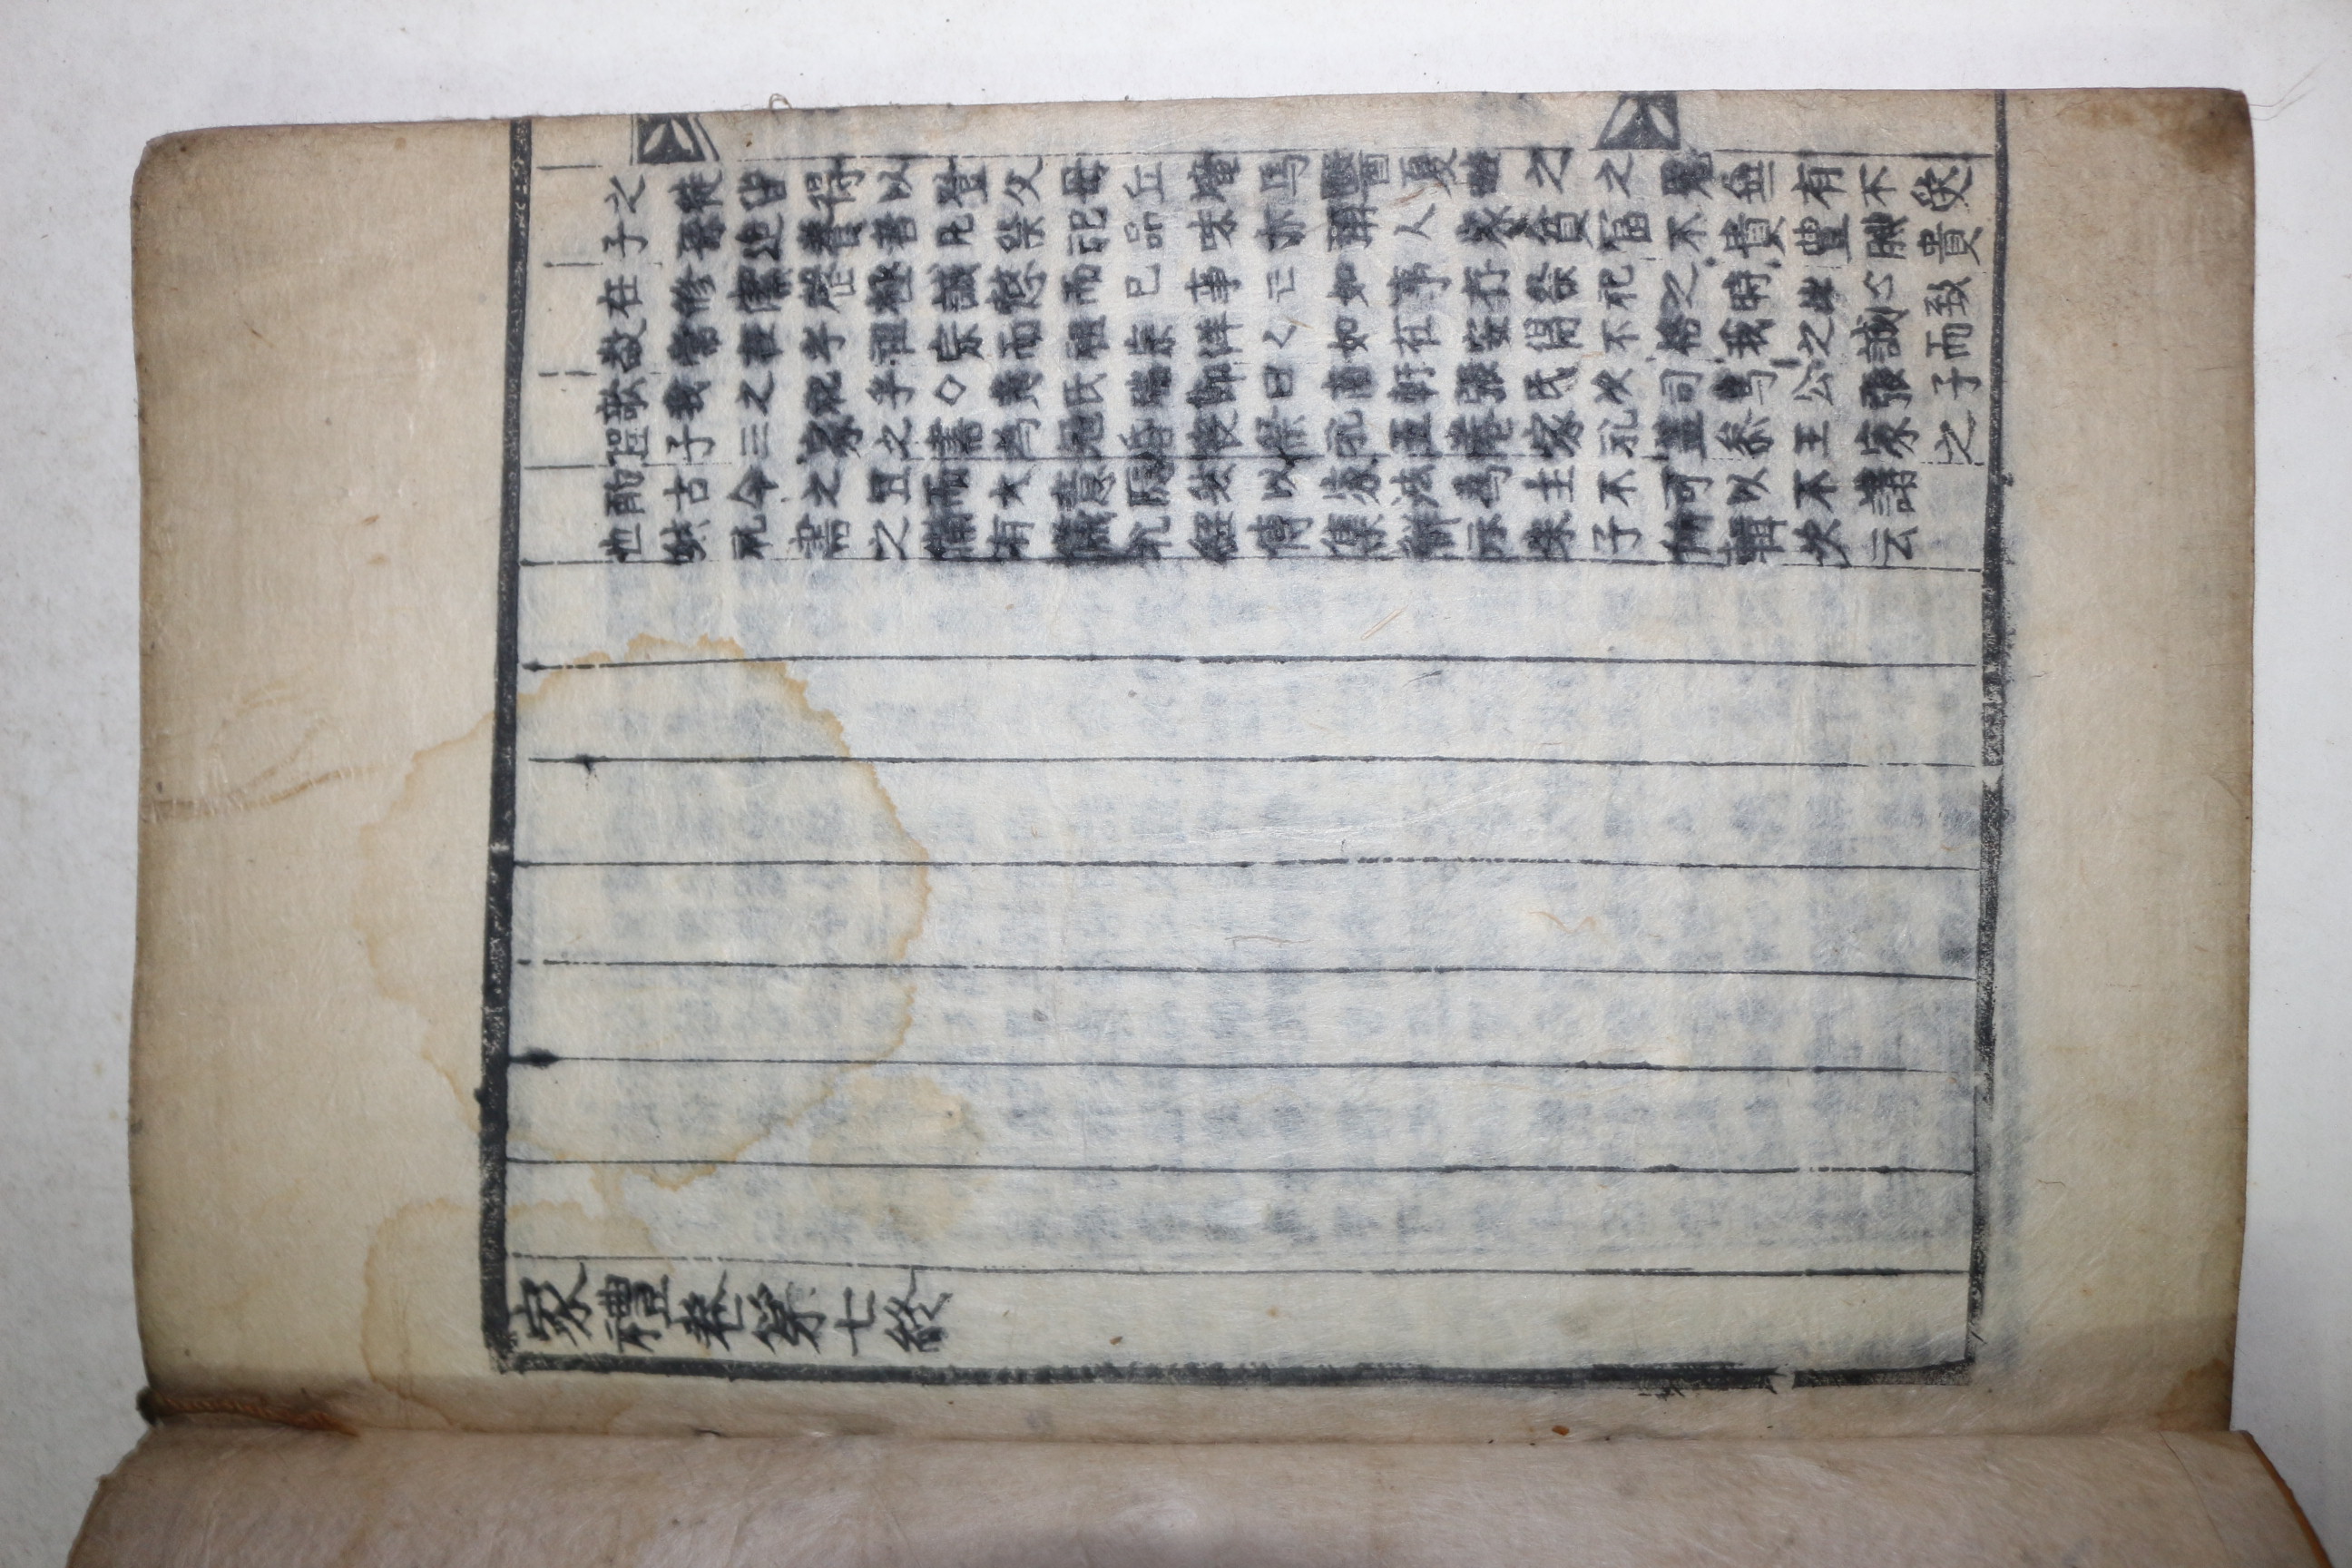 之徒皆得以登父母丘壠馬醫夏畦之之鬼無有不受
子孫追養者凡祭祀品味亦稱人家貧富不貴豐腆貴
在修潔罄極誠慤而已事亡如事存祭祀之時此心致
敬常在乎祖宗而祖宗洋〻如在安得不格我之誠而
歆我之祀乎◇黃氏瑞節曰南軒張氏次司馬公張子
程子三家之書為冠昏喪祭礼五卷家礼盖叅王家之
酌古今之宜而大意隱然以家法為主不可以不講
也然礼書之備有儀礼經傳集解亦朱子所輯次云
家禮卷第七終